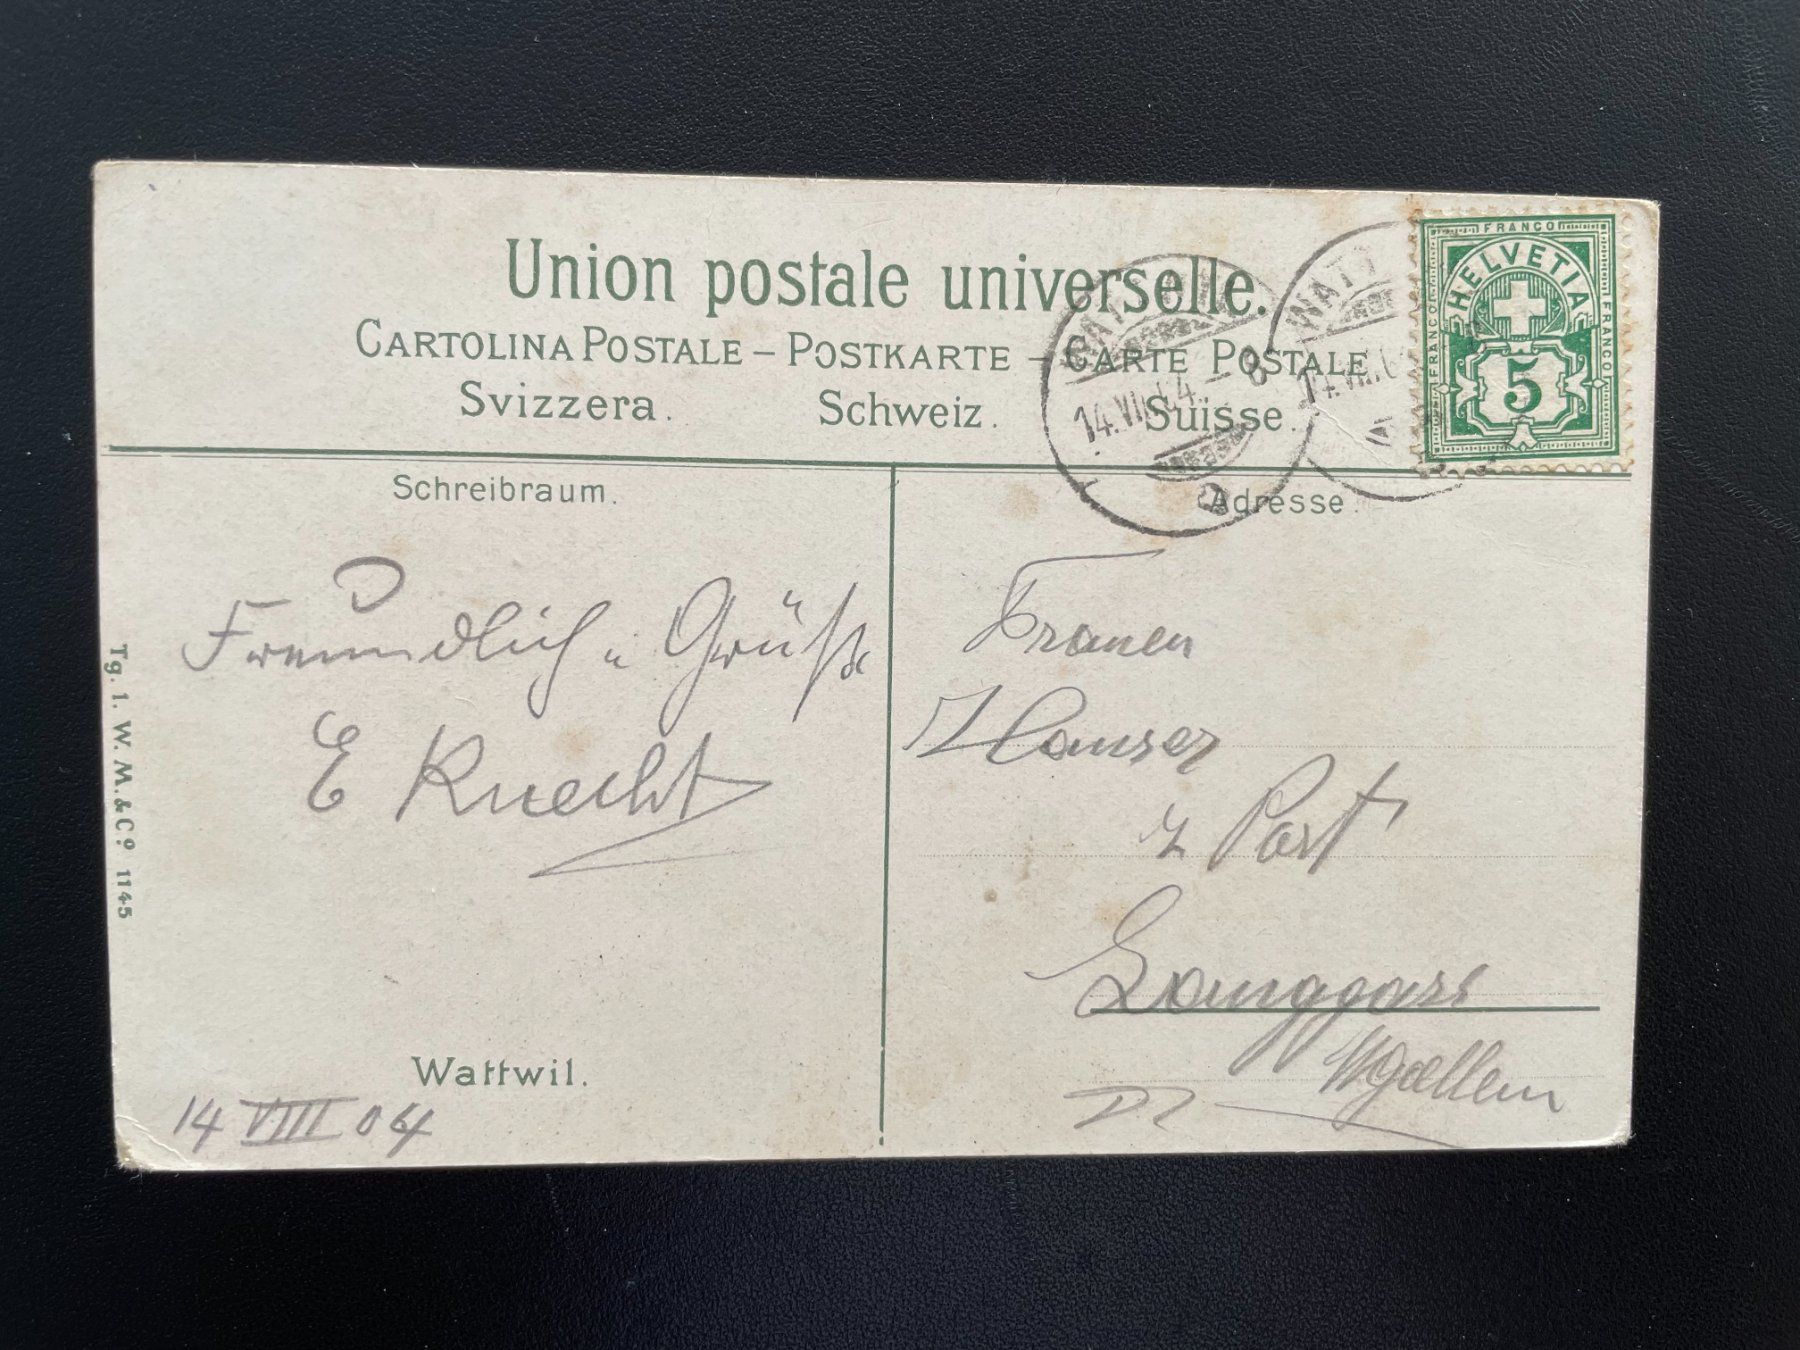 Union postale universelle.
CARTOLINA POSTALE – POSTKARTE – CARTE POSTALE
Svizzera. Schweiz. Suisse.
FRANCO
HELVETIA
FRANCO
FRANCO
5
WATT
14.VIII.04 – 8
14.VIII.0
Schreibraum.
Adresse.
Freundlich Grüße
E Knecht
Frauen
Hauser
z Post
Wattwil.
14 VIII 04
Tg. 1. W. M. & Co. 1145